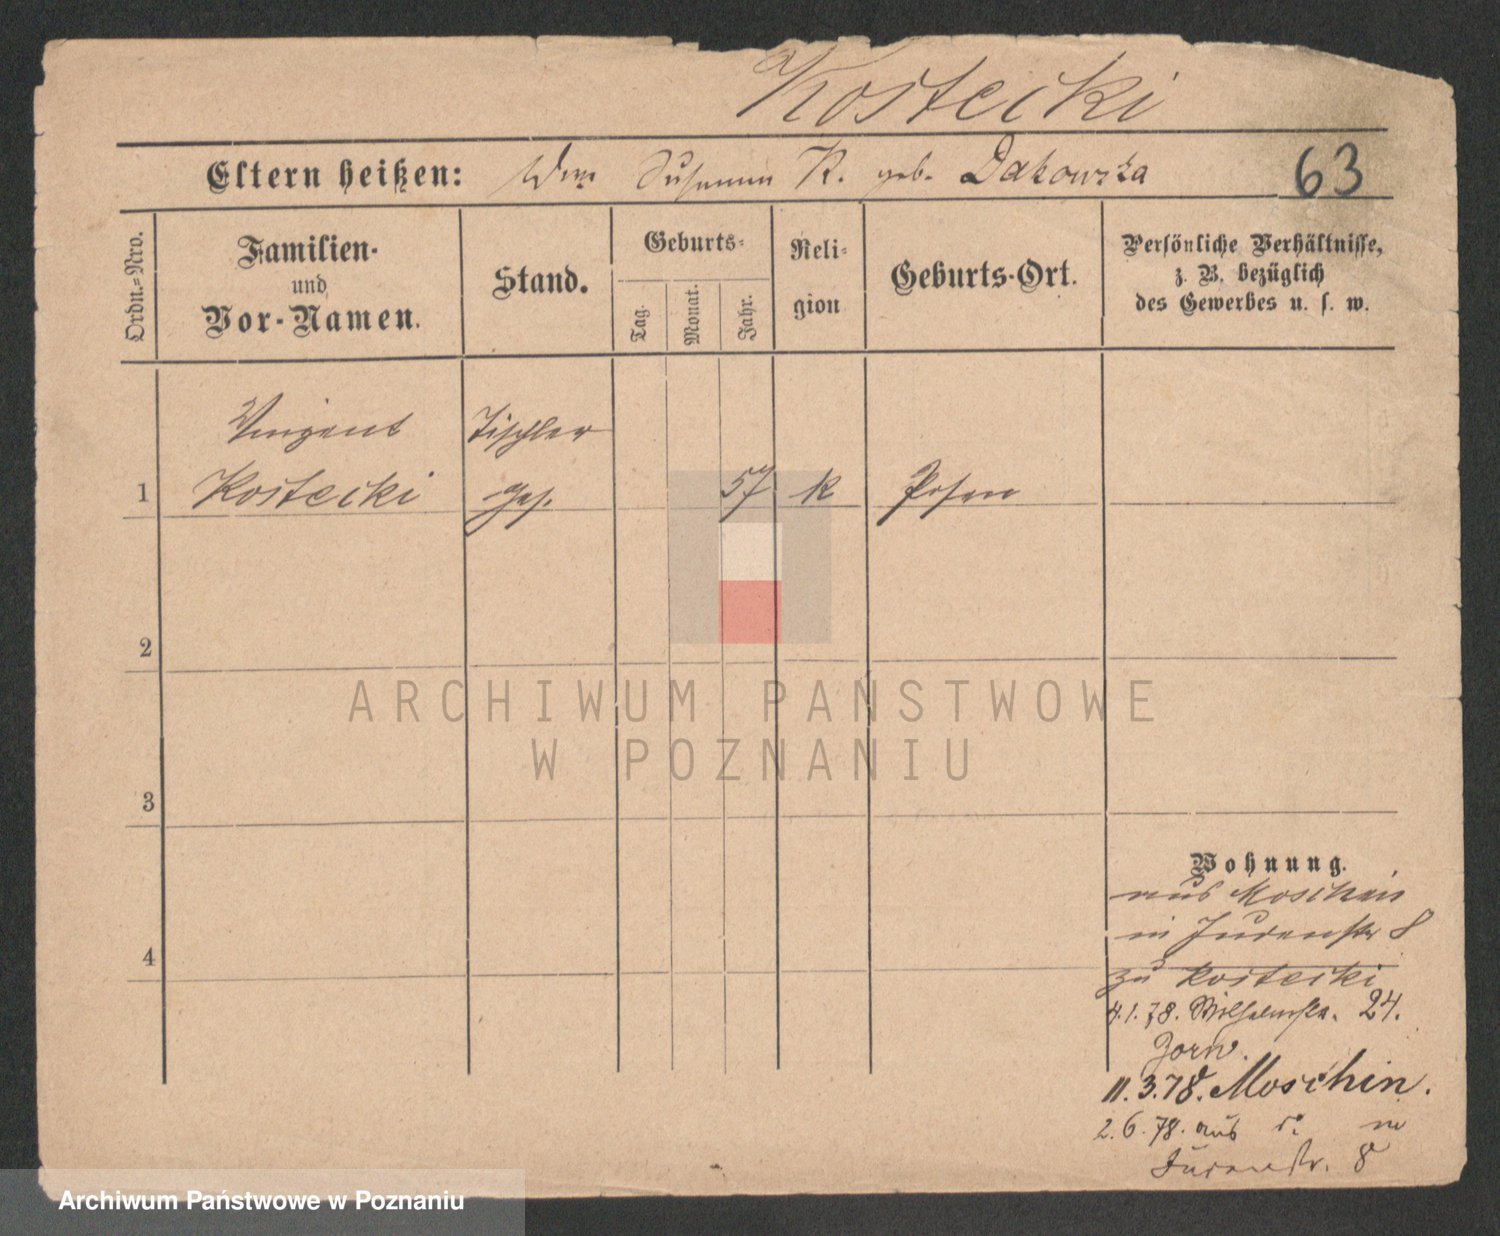 Kostecki
Eltern heißen: Wwe Susanna K. geb. Dakowska 63
Ordn.=Nro.
Familien-
und
Vor-Namen.
Stand.
Geburts=
Tag.
Monat.
Jahr.
Reli-
gion
Geburts-Ort.
Persönliche Verhältnisse,
z. B. bezüglich
des Gewerbes u. s. w.
Vinzent Tischler
1 Kostecki Ges. 57 k Posen
2
3
4
Wohnung.
aus Moschin
in Judenstr 8
zu Kostecki
4.1.78. Wilhelmstr. 24.
Zorn.
11.3.78. Moschin.
2.6.78. aus in
Judenstr. 8
ARCHIWUM PAŃSTWOWE
W POZNANIU
Archiwum Państwowe w Poznaniu